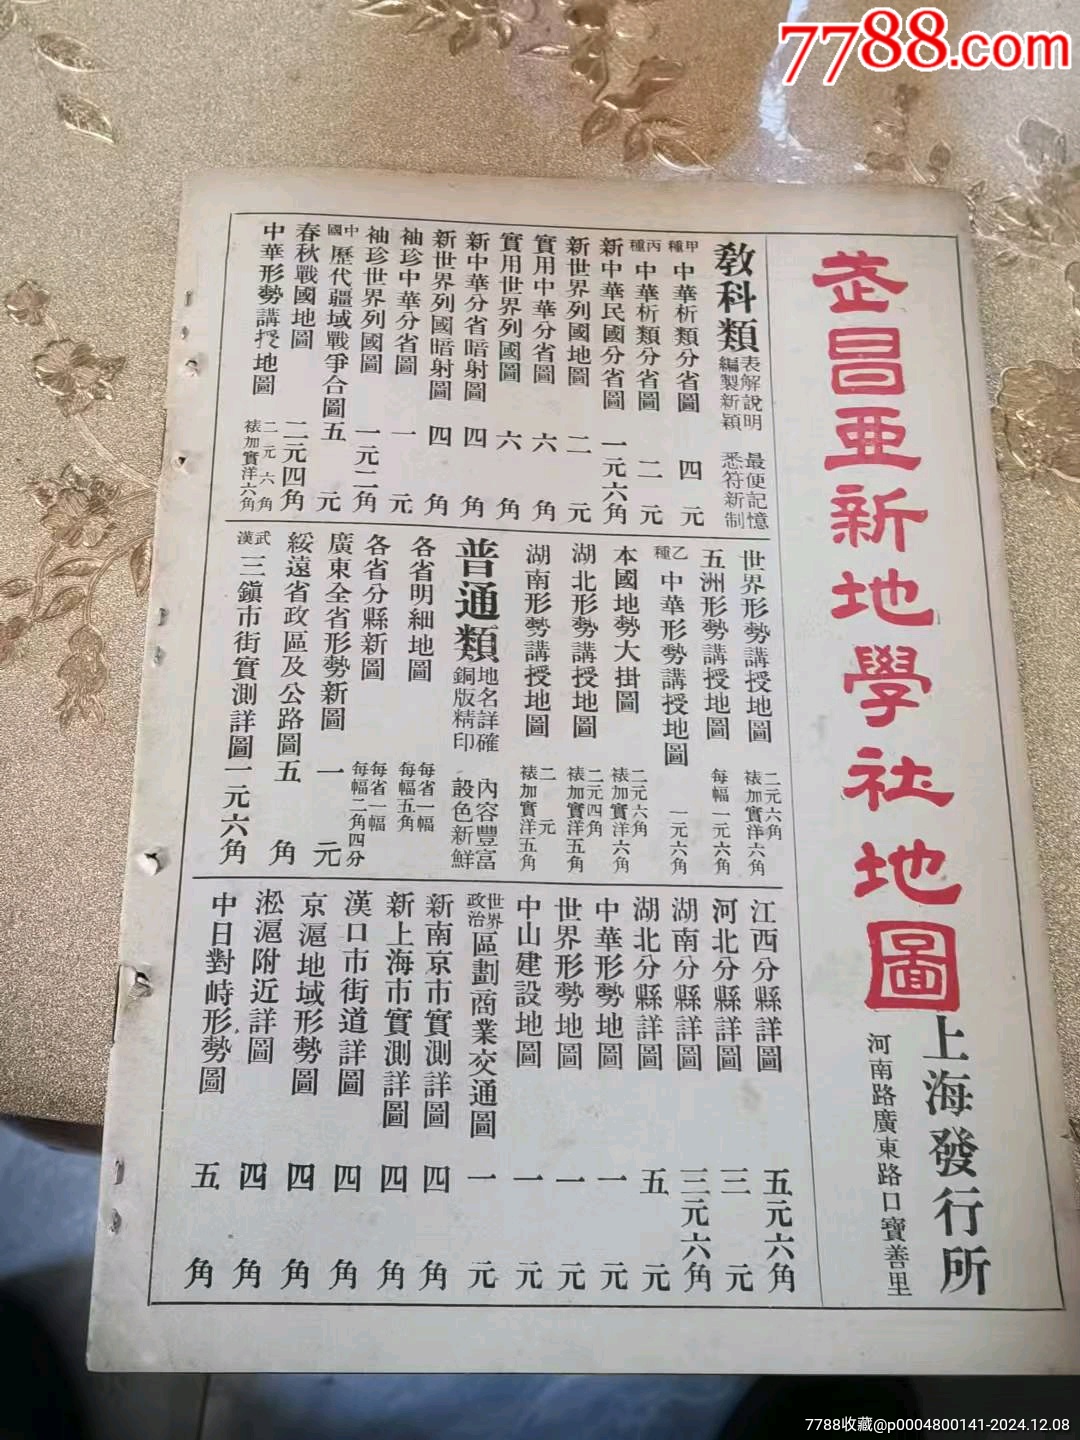 7788.com
武昌亞新地學社地圖
上海發行所
河南路廣東路口寶善里
教科類
表解說明 最便記憶
編製新穎 悉符新制
甲種 中華析類分省圖 四元
丙種 中華析類分省圖 二元
新中華民國分省圖 一元六角
新世界列國地圖 二元
實用中華分省圖 六角
實用世界列國圖 六角
新中華分省暗射圖 四角
新世界列國暗射圖 四角
袖珍中華分省圖 一元
袖珍世界列國圖 一元二角
中國 歷代疆域戰爭合圖 五元
春秋戰國地圖 二元四角
中華形勢講授地圖 二元六角 裱加實洋六角
世界形勢講授地圖 二元六角 裱加實洋六角
五洲形勢講授地圖 每幅一元六角
乙種 中華形勢講授地圖 一元六角
本國地勢大掛圖 二元六角 裱加實洋六角
湖北形勢講授地圖 二元四角 裱加實洋五角
湖南形勢講授地圖 二元 裱加實洋五角
普通類
地名詳確 內容豐富
銅版精印 設色新鮮
各省明細地圖 每省一幅 每幅五角
各省分縣新圖 每省一幅 每幅二角四分
廣東全省形勢新圖 一元
綏遠省政區及公路圖 五角
武漢 三鎮市街實測詳圖 一元六角
江西分縣詳圖 五元六角
河北分縣詳圖 三元
湖南分縣詳圖 三元六角
湖北分縣詳圖 五元
中華形勢地圖 一元
世界形勢地圖 一元
中山建設地圖 一元
世界政治 區劃商業交通圖 一元
新南京市實測詳圖 四角
新上海市實測詳圖 四角
漢口市街道詳圖 四角
京滬地域形勢圖 四角
淞滬附近詳圖 四角
中日對峙形勢圖 五角
7788收藏@p0004800141-2024.12.08